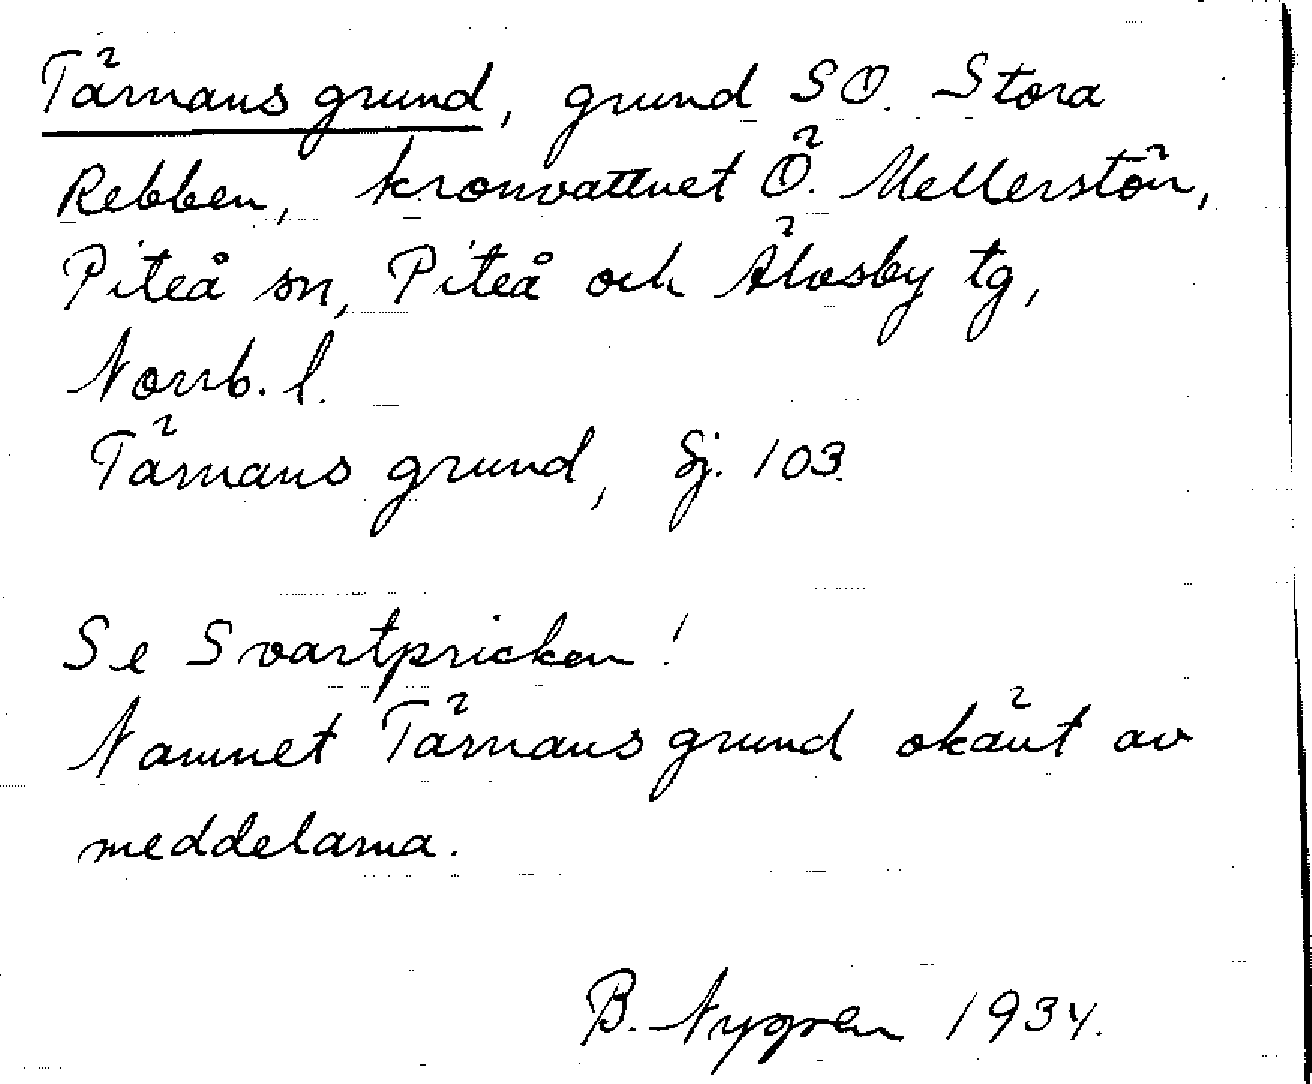 Tärnans grund, grund SO. Stora
Rebben, kronvattnet Ö. Mellerstön,
Piteå sn, Piteå och Älvsby tg,
Norrb. l.
Tärnans grund, Sj. 103.
Se Svartpricken!
Namnet Tärnans grund okänt av
meddelarna.
B. Nygren 1934.